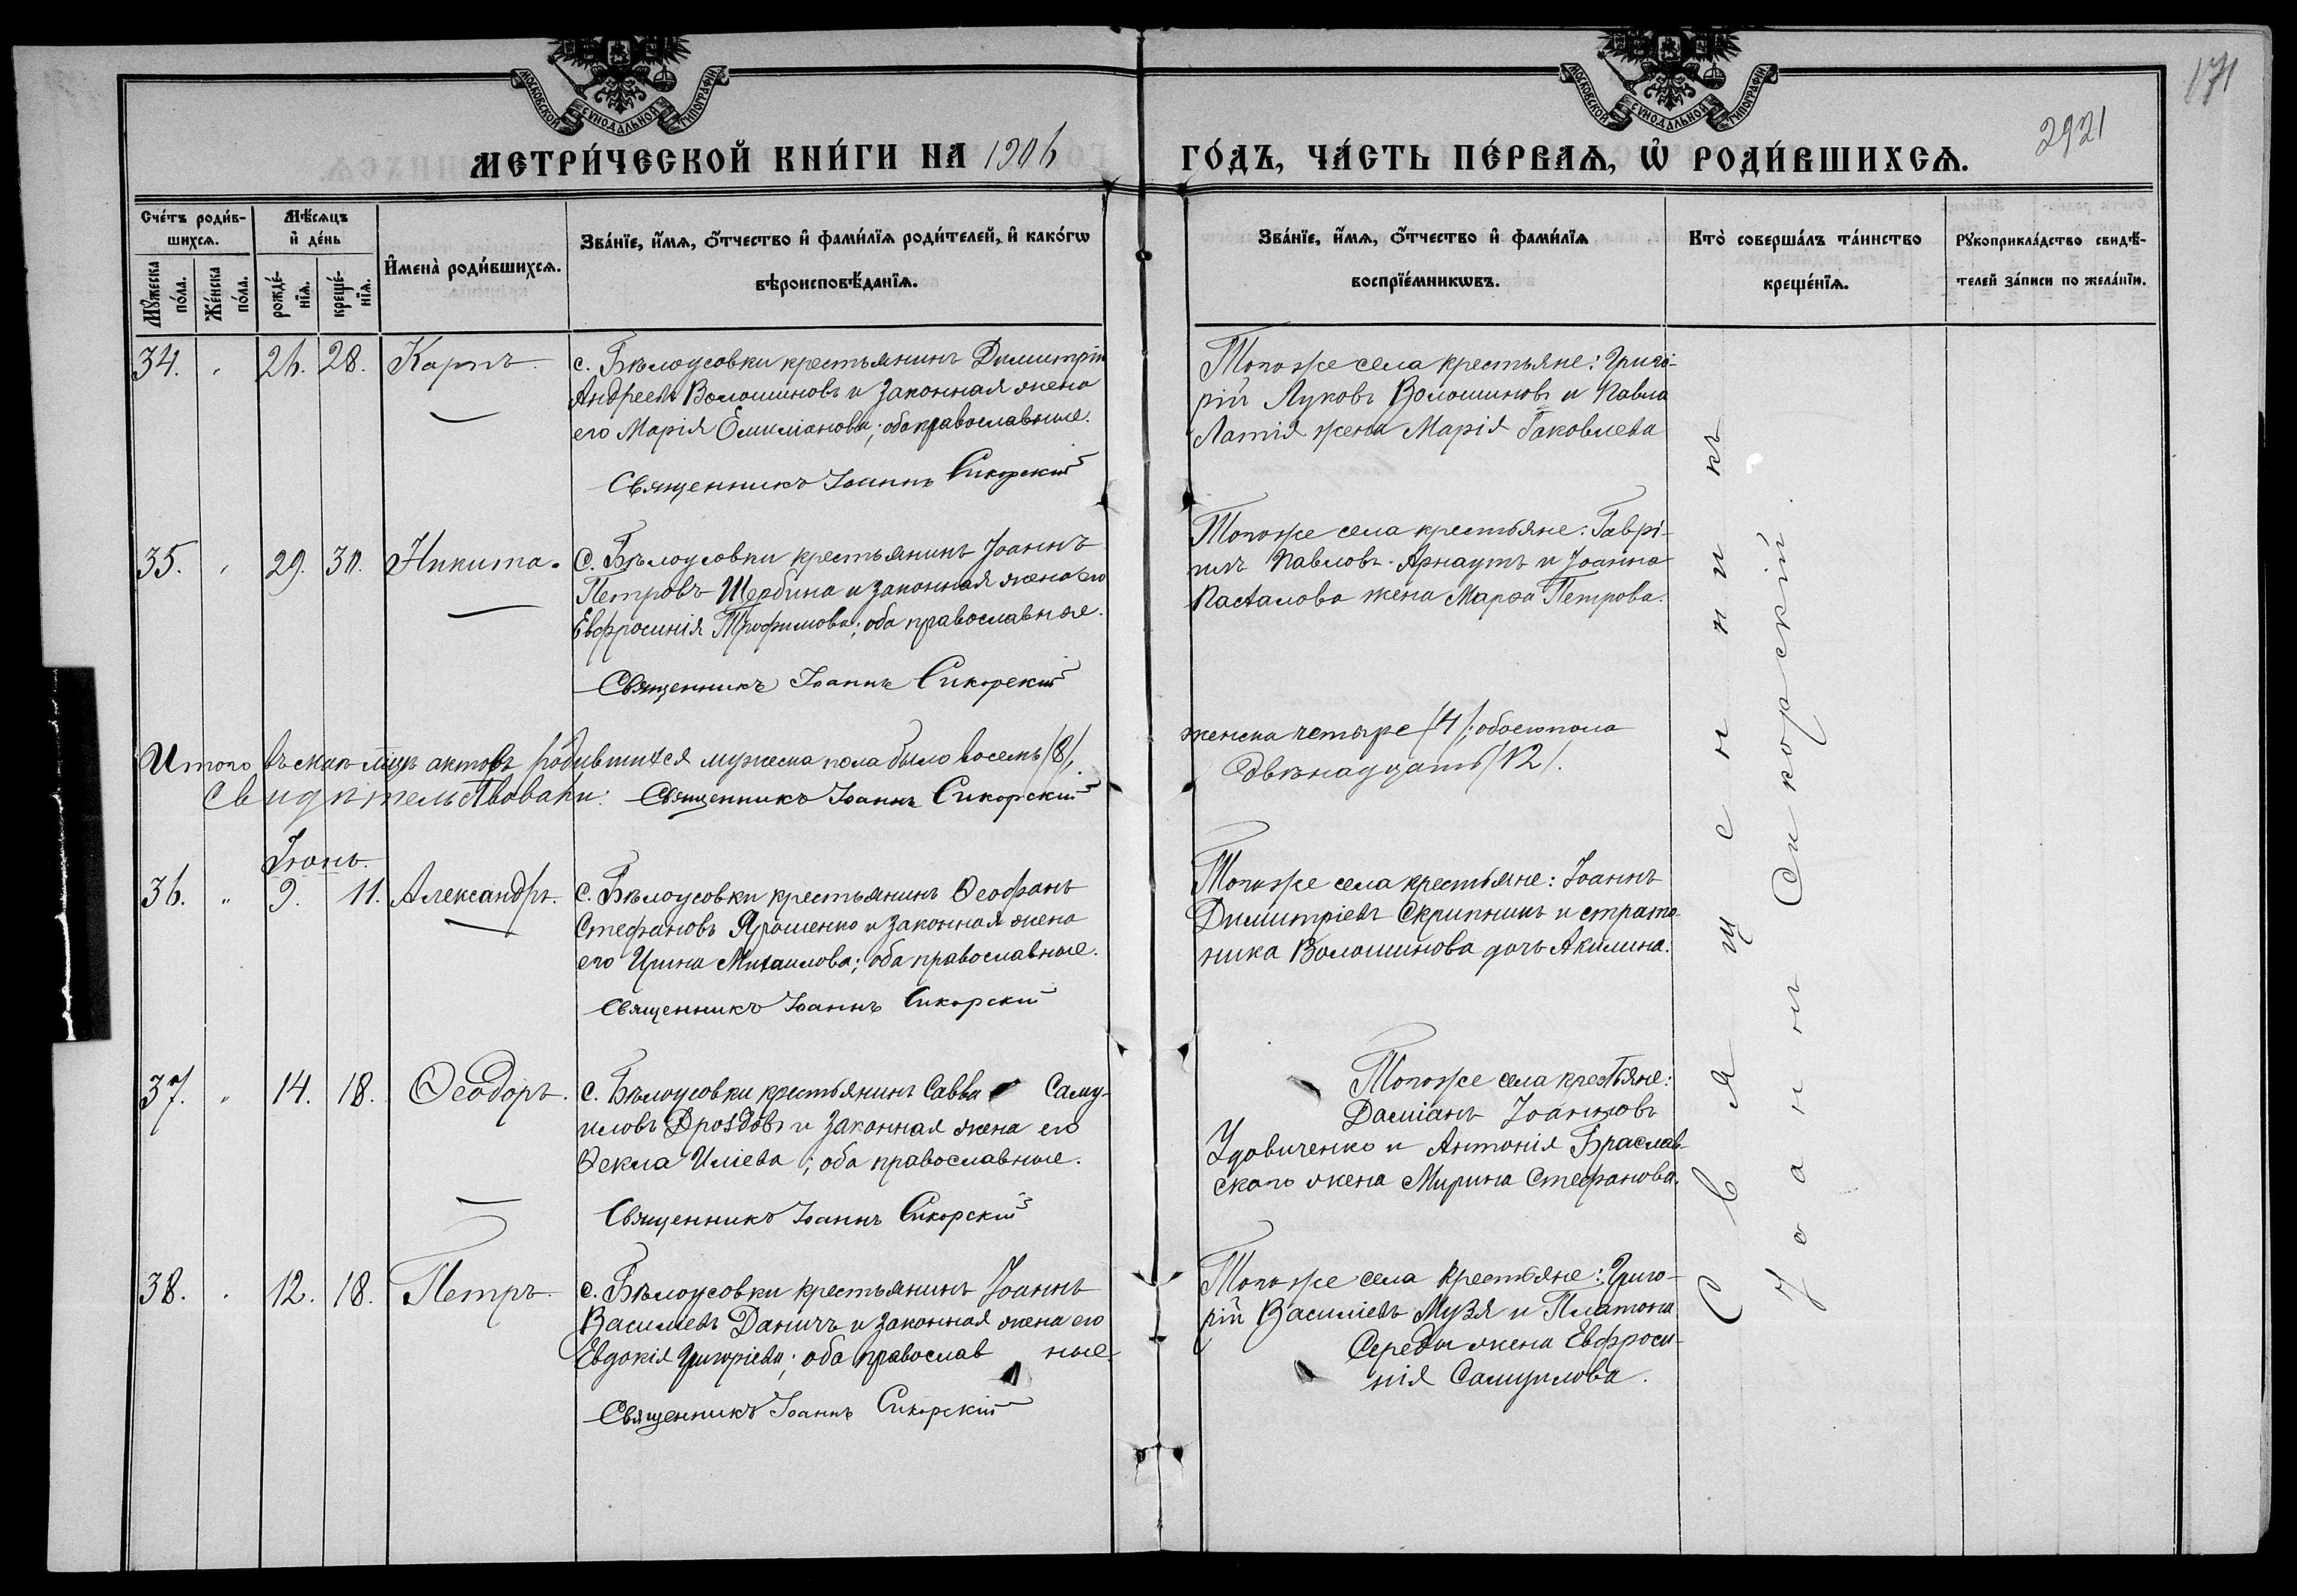 МОСКОВСКОЙ СѴНОДАЛЬНОЙ ТИПОГРАФІИ
МОСКОВСКОЙ СѴНОДАЛЬНОЙ ТИПОГРАФІИ
171
2921
МЕТРИ́ЧЕСКОЙ КНИ́ГИ НА 1906 ГО́ДЪ, ЧА́СТЬ ПЕ́РВАѦ, Ѡ҆ РОДИ́ВШИХСѦ.
Сче́тъ роди́в-
шихсѧ.
Мꙋ́жеска по́ла.
Же́нска по́ла.
Мѣ́сѧцъ
и҆ де́нь
рожде́-
нїѧ.
креще́-
нїѧ.
И҆мена̀ роди́вшихсѧ.
Зва́нїе, и҆́мѧ, ѻ҆́тчество и҆ фами́лїѧ роди́телей, и҆ како́гѡ
вѣроисповѣ́данїѧ.
Зва́нїе, и҆́мѧ, ѻ҆́тчество и҆ фами́лїѧ
воспрїе́мникѡвъ.
Кто̀ соверша́лъ та́инство
креще́нїѧ.
Рꙋкоприкла́дство свидѣ́-
телей за́писи по жела́нїю.
34. " 26. 28. Карпъ.
с. Бѣлоусовки крестьянинъ Димитрій
Андреевъ Волошиновъ и законная жена
его Марія Емиліанова; оба православные.
Священникъ Іоаннъ Сикорскій
Тогоже села крестьяне: Григо-
рій Луковъ Волошиновъ и Павла
Латія жена Марія Іаковлева
35. " 29. 30. Никита.
с. Бѣлоусовки крестьянинъ Іоаннъ
Петровъ Щербина и законная жена его
Евфросинія Трофимова; оба православные.
Священникъ Іоаннъ Сикорскій
Тогоже села крестьяне: Гаврі-
илъ Павловъ Арнаутъ и Іоанна
жена Марѳа Петрова.
Итого въ маѣ мѣсяцѣ актовъ родившихся мужеска пола было восемь /8/,
женска четыре /4/; обоего пола
двѣнадцать /12/.
Свидѣтельствовали: Священникъ Іоаннъ Сикорскій
Іюнь.
36. " 9. 11. Александръ.
с. Бѣлоусовки крестьянинъ Ѳеофанъ
Стефановъ Ярошенко и законная жена
его Ирина Михаилова; оба православные.
Священникъ Іоаннъ Сикорскій
Тогоже села крестьяне: Іоаннъ
Димитріевъ Скрипникъ и Страто-
ника Волошинова дочь Акилина.
37. " 14. 18. Ѳеодоръ.
с. Бѣлоусовки крестьянинъ Савва Саму-
иловъ Дроздовъ и законная жена его
Ѳекла Иліева; оба православные.
Священникъ Іоаннъ Сикорскій
Тогоже села крестьяне:
Даміанъ Іоанновъ
Удовиченко и Антонія Браслав-
скаго жена Ирина Стефанова.
38. " 12. 18. Петръ.
с. Бѣлоусовки крестьянинъ Іоаннъ
Василіевъ Даничъ и законная жена его
Евдокія Григоріева; оба православные.
Священникъ Іоаннъ Сикорскій
Тогоже села крестьяне: Григо-
рій Василіевъ Музя и Платона
Середы жена Евфроси-
нія Самуилова.
Священникъ
Іоаннъ Сикорскій.